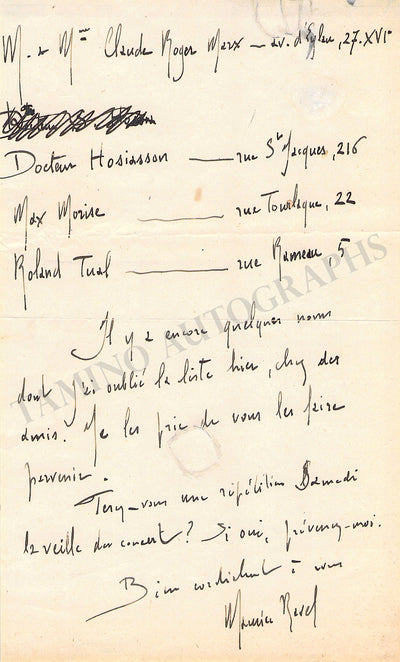 M. & Mme Claude Roger Marx — av. d'Eylau, 27. XVIe
Docteur Hosiasson — rue St Jacques, 216
Max Morise — rue Tourlaque, 22
Roland Tual — rue Rameau, 5
Il y a encore quelques noms
dont j'ai oublié la liste hier, chez des
amis. Je les prie de vous les faire
parvenir.
Ferez-vous une répétition Samedi
la veille du concert? Si oui, prévenez-moi.
Bien cordialement à vous
Maurice Ravel
TAMINO AUTOGRAPHS